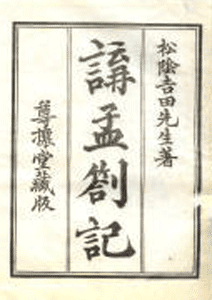 松陰吉田先生著
講孟劄記
尊攘堂藏版